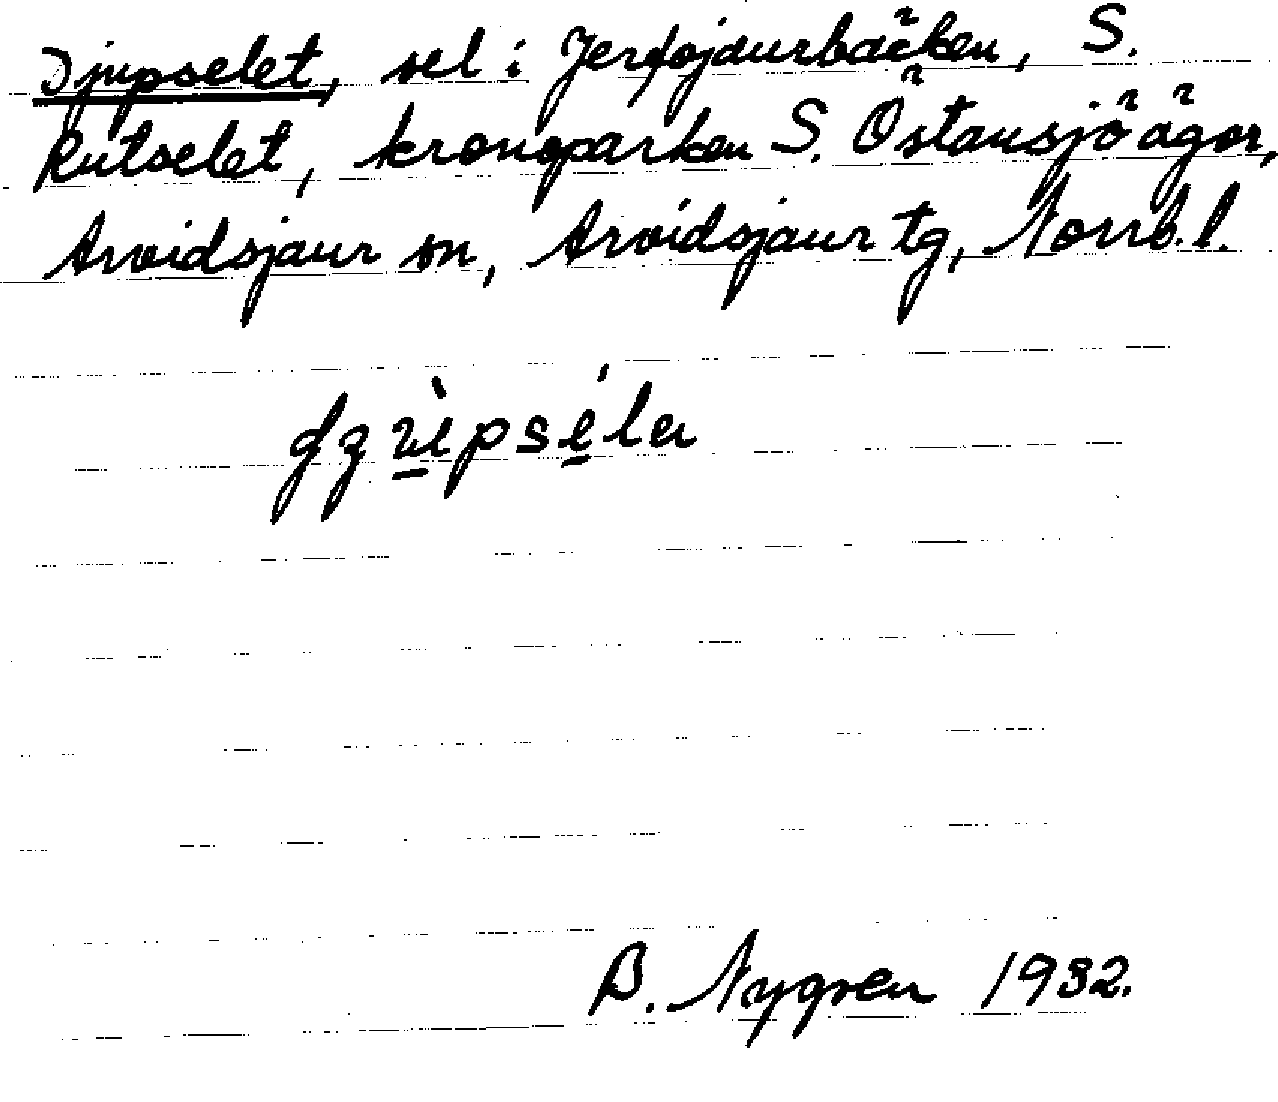 Djupselet, sel i Jerfojaurbäcken, S.
Rutselet, kronoparken S. Östansjö ägor,
Arvidsjaur sn, Arvidsjaur tg, Norrb. l.
B. Nygren 1932.